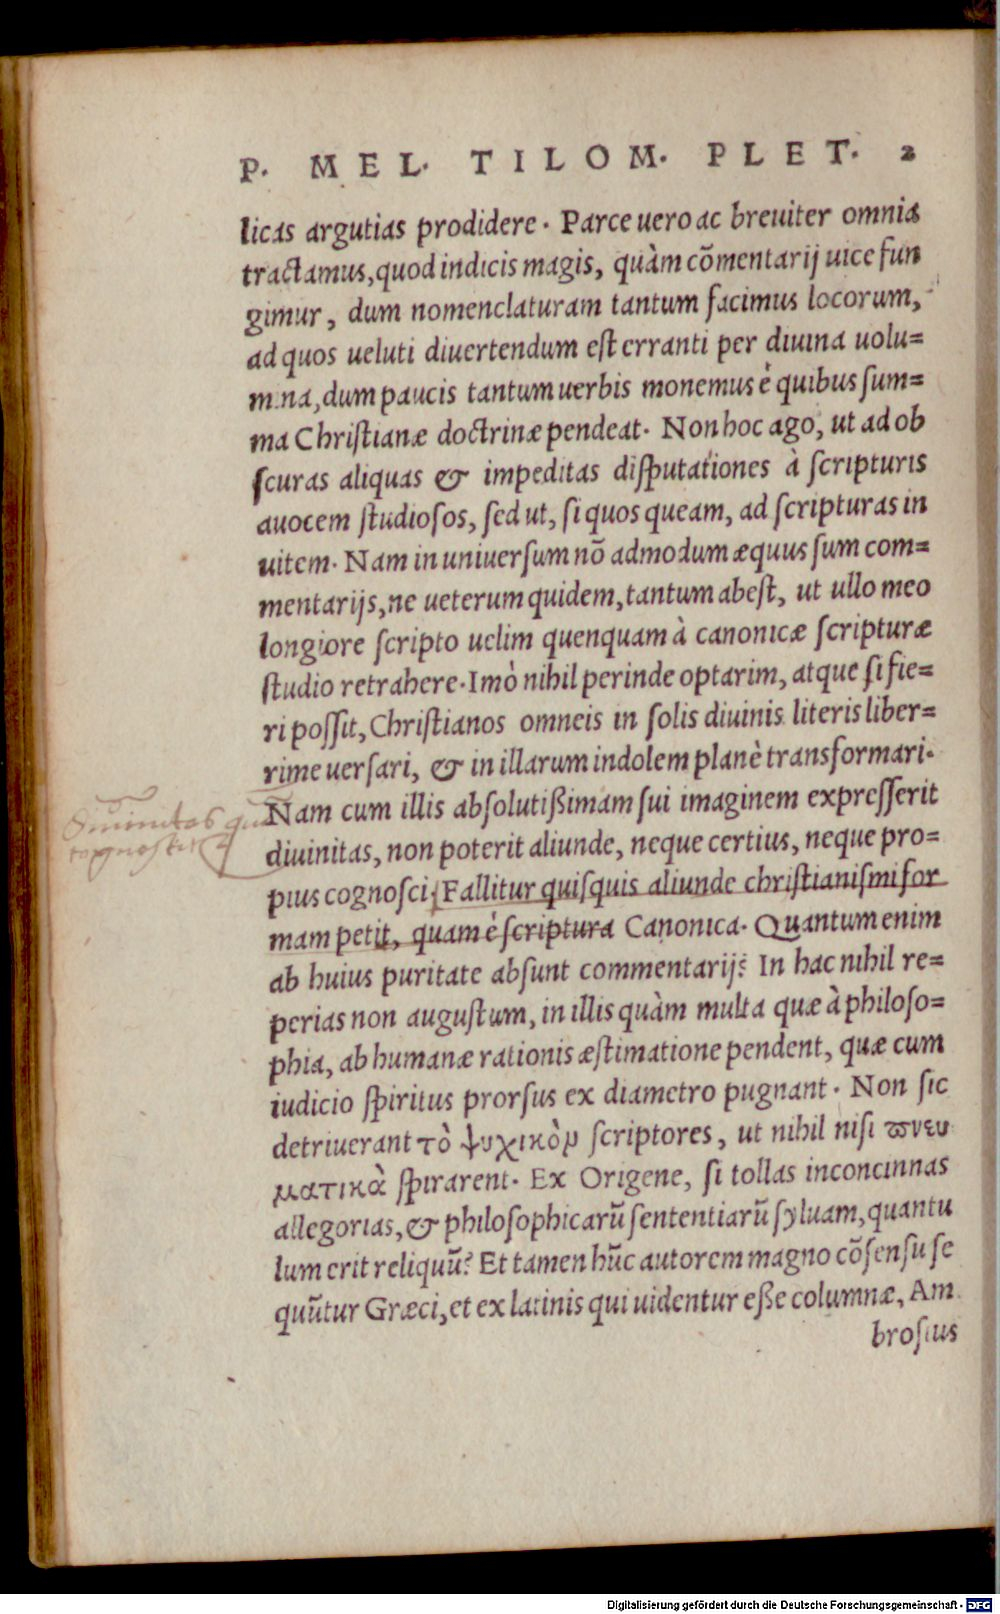 P. MEL. TILOM. PLET. 2
licas argutias prodidere. Parce uero ac breuiter omnia
tractamus, quod indicis magis, quàm cōmentarij uice fun
gimur, dum nomenclaturam tantum facimus locorum,
ad quos ueluti diuertendum est erranti per diuina uolu=
mina, dum paucis tantum uerbis monemus è quibus sum=
ma Christianæ doctrinæ pendeat. Non hoc ago, ut ad ob
scuras aliquas & impeditas disputationes à scripturis
auocem studiosos, sed ut, si quos queam, ad scripturas in
uitem. Nam in uniuersum nō admodum æquus sum com=
mentarijs, ne ueterum quidem, tantum abest, ut ullo meo
longiore scripto uelim quenquam à canonicæ scripturæ
studio retrahere. Imò nihil perinde optarim, atque si fie=
ri possit, Christianos omneis in solis diuinis literis liber=
rime uersari, & in illarum indolem planè transformari.
Nam cum illis absolutißimam sui imaginem expresserit
diuinitas, non poterit aliunde, neque certius, neque pro=
pius cognosci. Fallitur quisquis aliunde christianismi for
mam petit, quam è scriptura Canonica. Quantum enim
ab huius puritate absunt commentarij? In hac nihil re=
perias non augustum, in illis quàm multa quæ à philoso=
phia, ab humanæ rationis æstimatione pendent, quæ cum
iudicio spiritus prorsus ex diametro pugnant. Non sic
detriuerant τὸ ψυχικὸν scriptores, ut nihil nisi πνευ
ματικὰ spirarent. Ex Origene, si tollas inconcinnas
allegorias, & philosophicarū sententiarū syluam, quantu
lum erit reliquū? Et tamen hūc autorem magno cōsensu se
quūtur Græci, et ex latinis qui uidentur eße columnæ, Am
brosius
Diuinitas
Digitalisierung gefördert durch die Deutsche Forschungsgemeinschaft - DFG